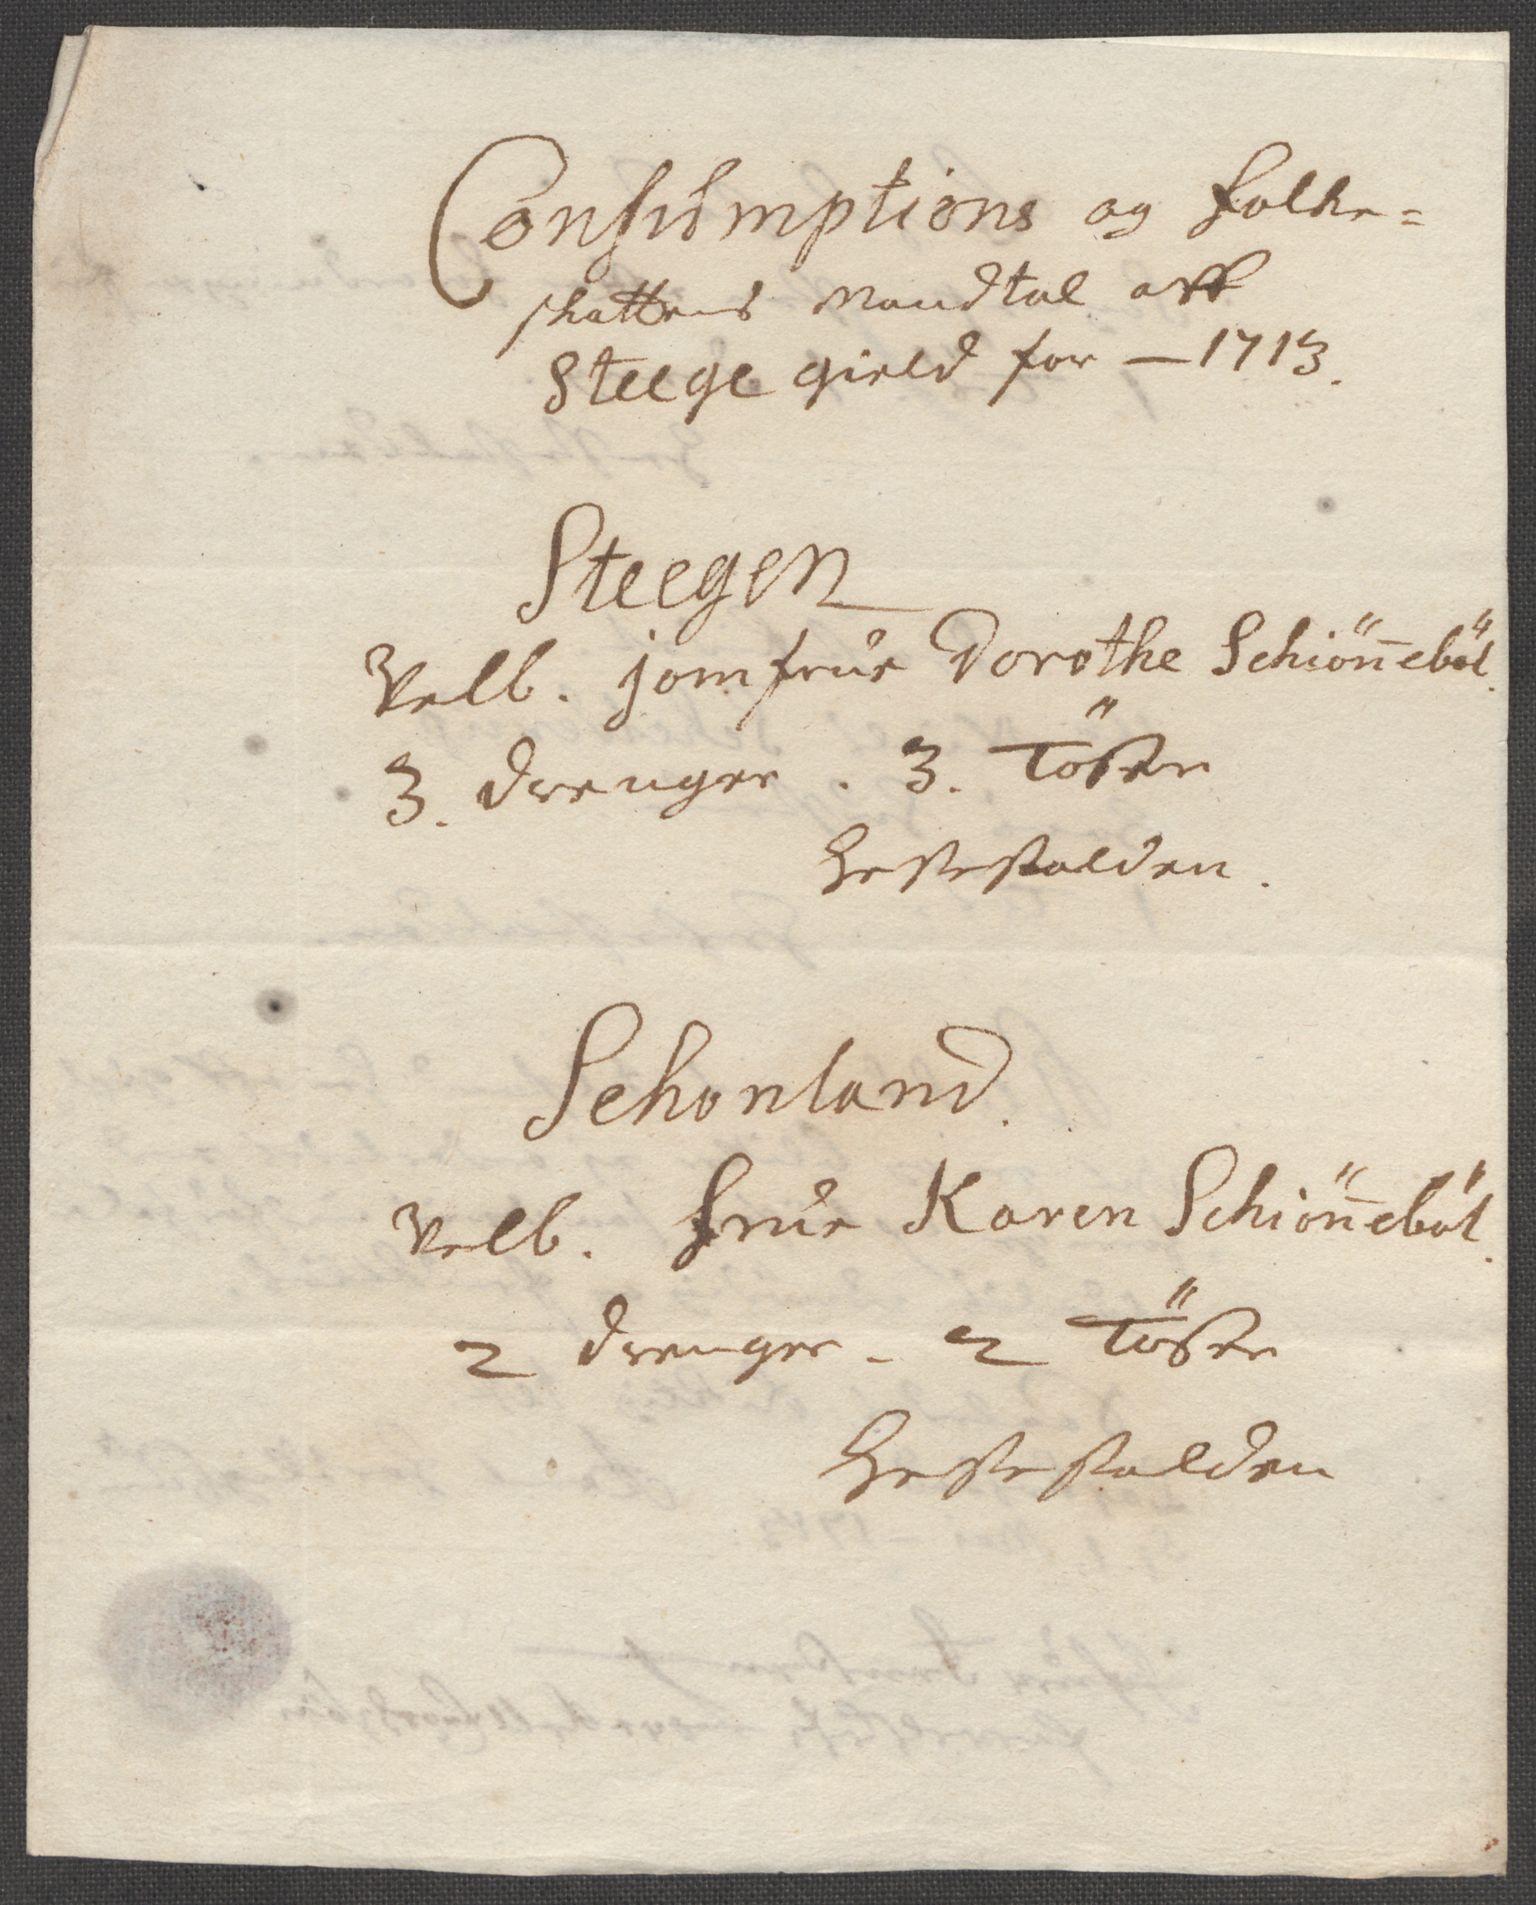 Consumptions og folke=
skattens Mandtal aff
Steege gield for — 1713.
Steegen
Velb. jomfrue Dorothe Schiön̄eböl.
3. drenger . 3. Töser
Hestestalden.
Schonland.
Velb. frue Karen Schiön̄eböl.
2 drenger - 2 Töser
Hestestalden